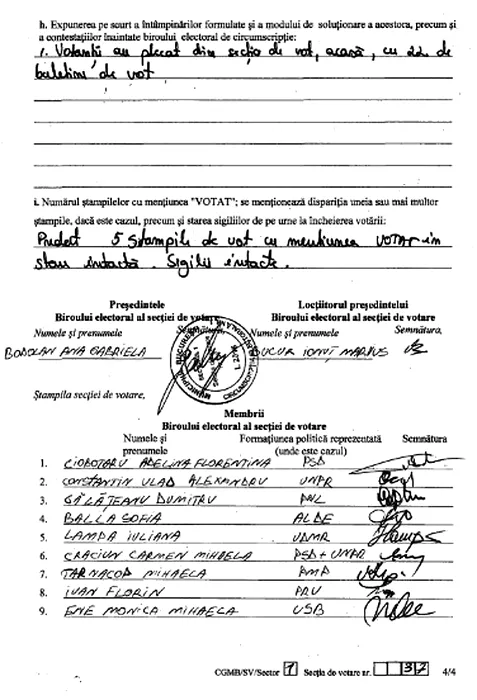 h. Expunerea pe scurt a întâmpinărilor formulate şi a modului de soluţionare a acestora, precum şi
a contestaţiilor înaintate biroului electoral de circumscripţie:
1. Votanții au plecat din secția de vot, acasă, cu 22 de
buletine de vot
i. Numărul ştampilelor cu menţiunea "VOTAT"; se menţionează dispariţia uneia sau mai multor
ştampile, dacă este cazul, precum şi starea sigiliilor de pe urne la încheierea votării:
Predat 5 stampile de vot cu mentiunea VOTAT in
stare intactă. Sigilii intacte.
Preşedintele
Biroului electoral al secţiei de votare
Numele şi prenumele Semnătura,
BODOLAN ANA GABRIELA
Locţiitorul preşedintelui
Biroului electoral al secţiei de votare
Numele şi prenumele Semnătura,
BUCUR IONUȚ MARIUS
Ştampila secţiei de votare,
Membrii
Biroului electoral al secţiei de votare
Numele şi prenumele Formaţiunea politică reprezentată (unde este cazul) Semnătura
1. CIOBOTARU ADELINA FLORENTINA PSD
2. CONSTANTIN VLAD ALEXANDRU UNPR
3. GĂLĂȚEANU DUMITRU PNL
4. BALLA SOFIA ALDE
5. LAMPA IULIANA UDMR
6. CRACIUN CARMEN MIHAELA PSD + UNPR
7. TARNACOP MIHAELA PMP
8. IVAN FLORIN PRU
9. ENE MONICA MIHAELA USB
CGMB/SV/Sector 1 Secţia de votare nr. 37 4/4